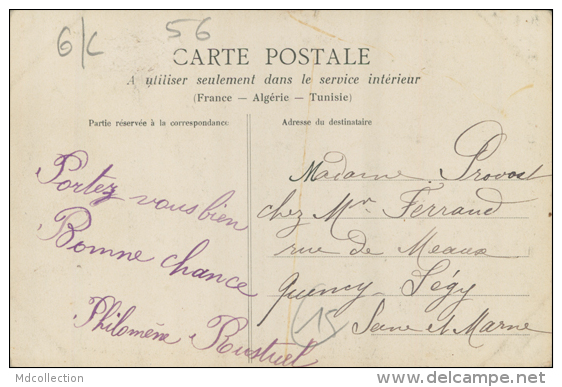 6/c 56
CARTE POSTALE
A utiliser seulement dans le service intérieur
(France — Algérie — Tunisie)
Partie réservée à la correspondance
Adresse du destinataire
Portez vous bien
Bonne chance
Philomène Rustuel
Madame Provost
chez Mr Ferrand
rue de Meaux
Quency-Ségy
Seine et Marne
15
Mdcollection
www.delcampe.net